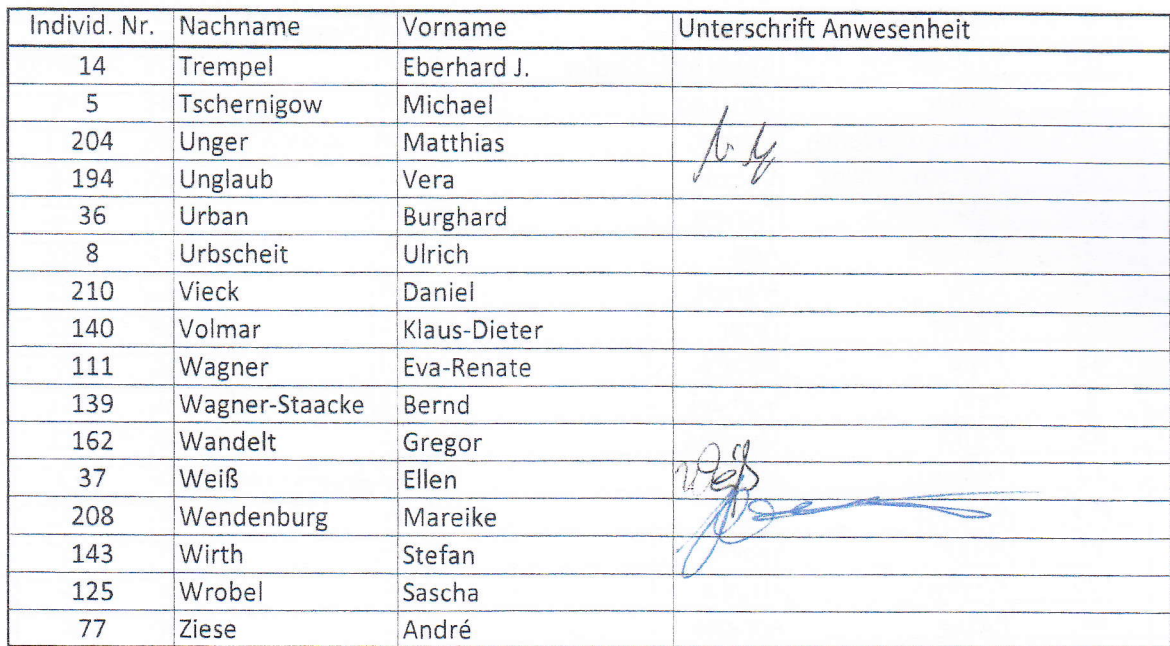 Individ. Nr. Nachname Vorname Unterschrift Anwesenheit
14 Trempel Eberhard J.
5 Tschernigow Michael
204 Unger Matthias
194 Unglaub Vera
36 Urban Burghard
8 Urbscheit Ulrich
210 Vieck Daniel
140 Volmar Klaus-Dieter
111 Wagner Eva-Renate
139 Wagner-Staacke Bernd
162 Wandelt Gregor
37 Weiß Ellen Weiß
208 Wendenburg Mareike
143 Wirth Stefan
125 Wrobel Sascha
77 Ziese André